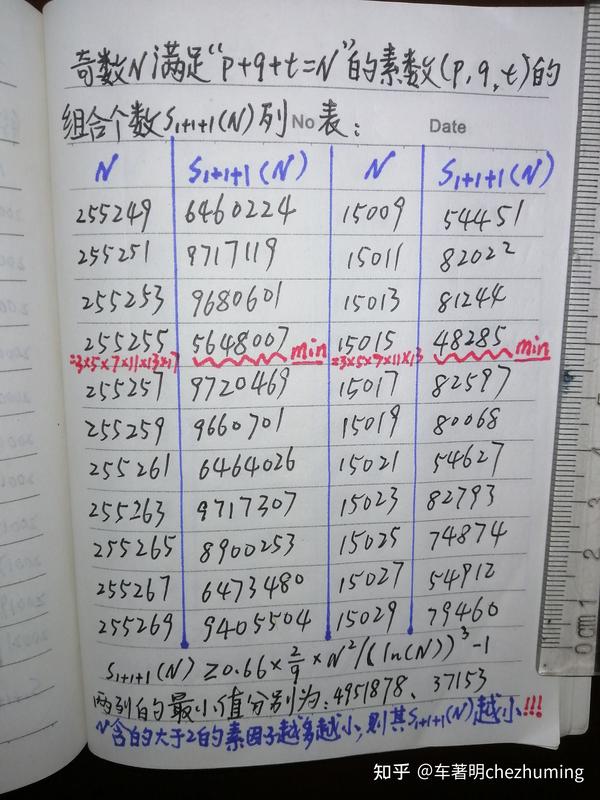 奇数N满足“p+q+t=N”的素数(p,q,t)的
组合个数S1+1+1(N)列No表:
Date
N S1+1+1(N) N S1+1+1(N)
255249 6460224 15009 54451
255251 9717119 15011 82022
255253 9680601 15013 81244
255255 5648007 min 15015 48285 min
=3×5×7×11×13×17 =3×5×7×11×13
255257 9720469 15017 82597
255259 9660701 15019 80068
255261 6464026 15021 54627
255263 9717307 15023 82793
255265 8900253 15025 74874
255267 6473480 15027 54912
255269 9405504 15029 79460
S1+1+1(N)≥0.66×2/9×N²/(ln(N))³-1
两列的最小值分别为:4951878、37153
N含的大于2的素因子越多越小,则其S1+1+1(N)越小!!!
0cm 1 2 3 4 5
知乎 @车著明chezhuming